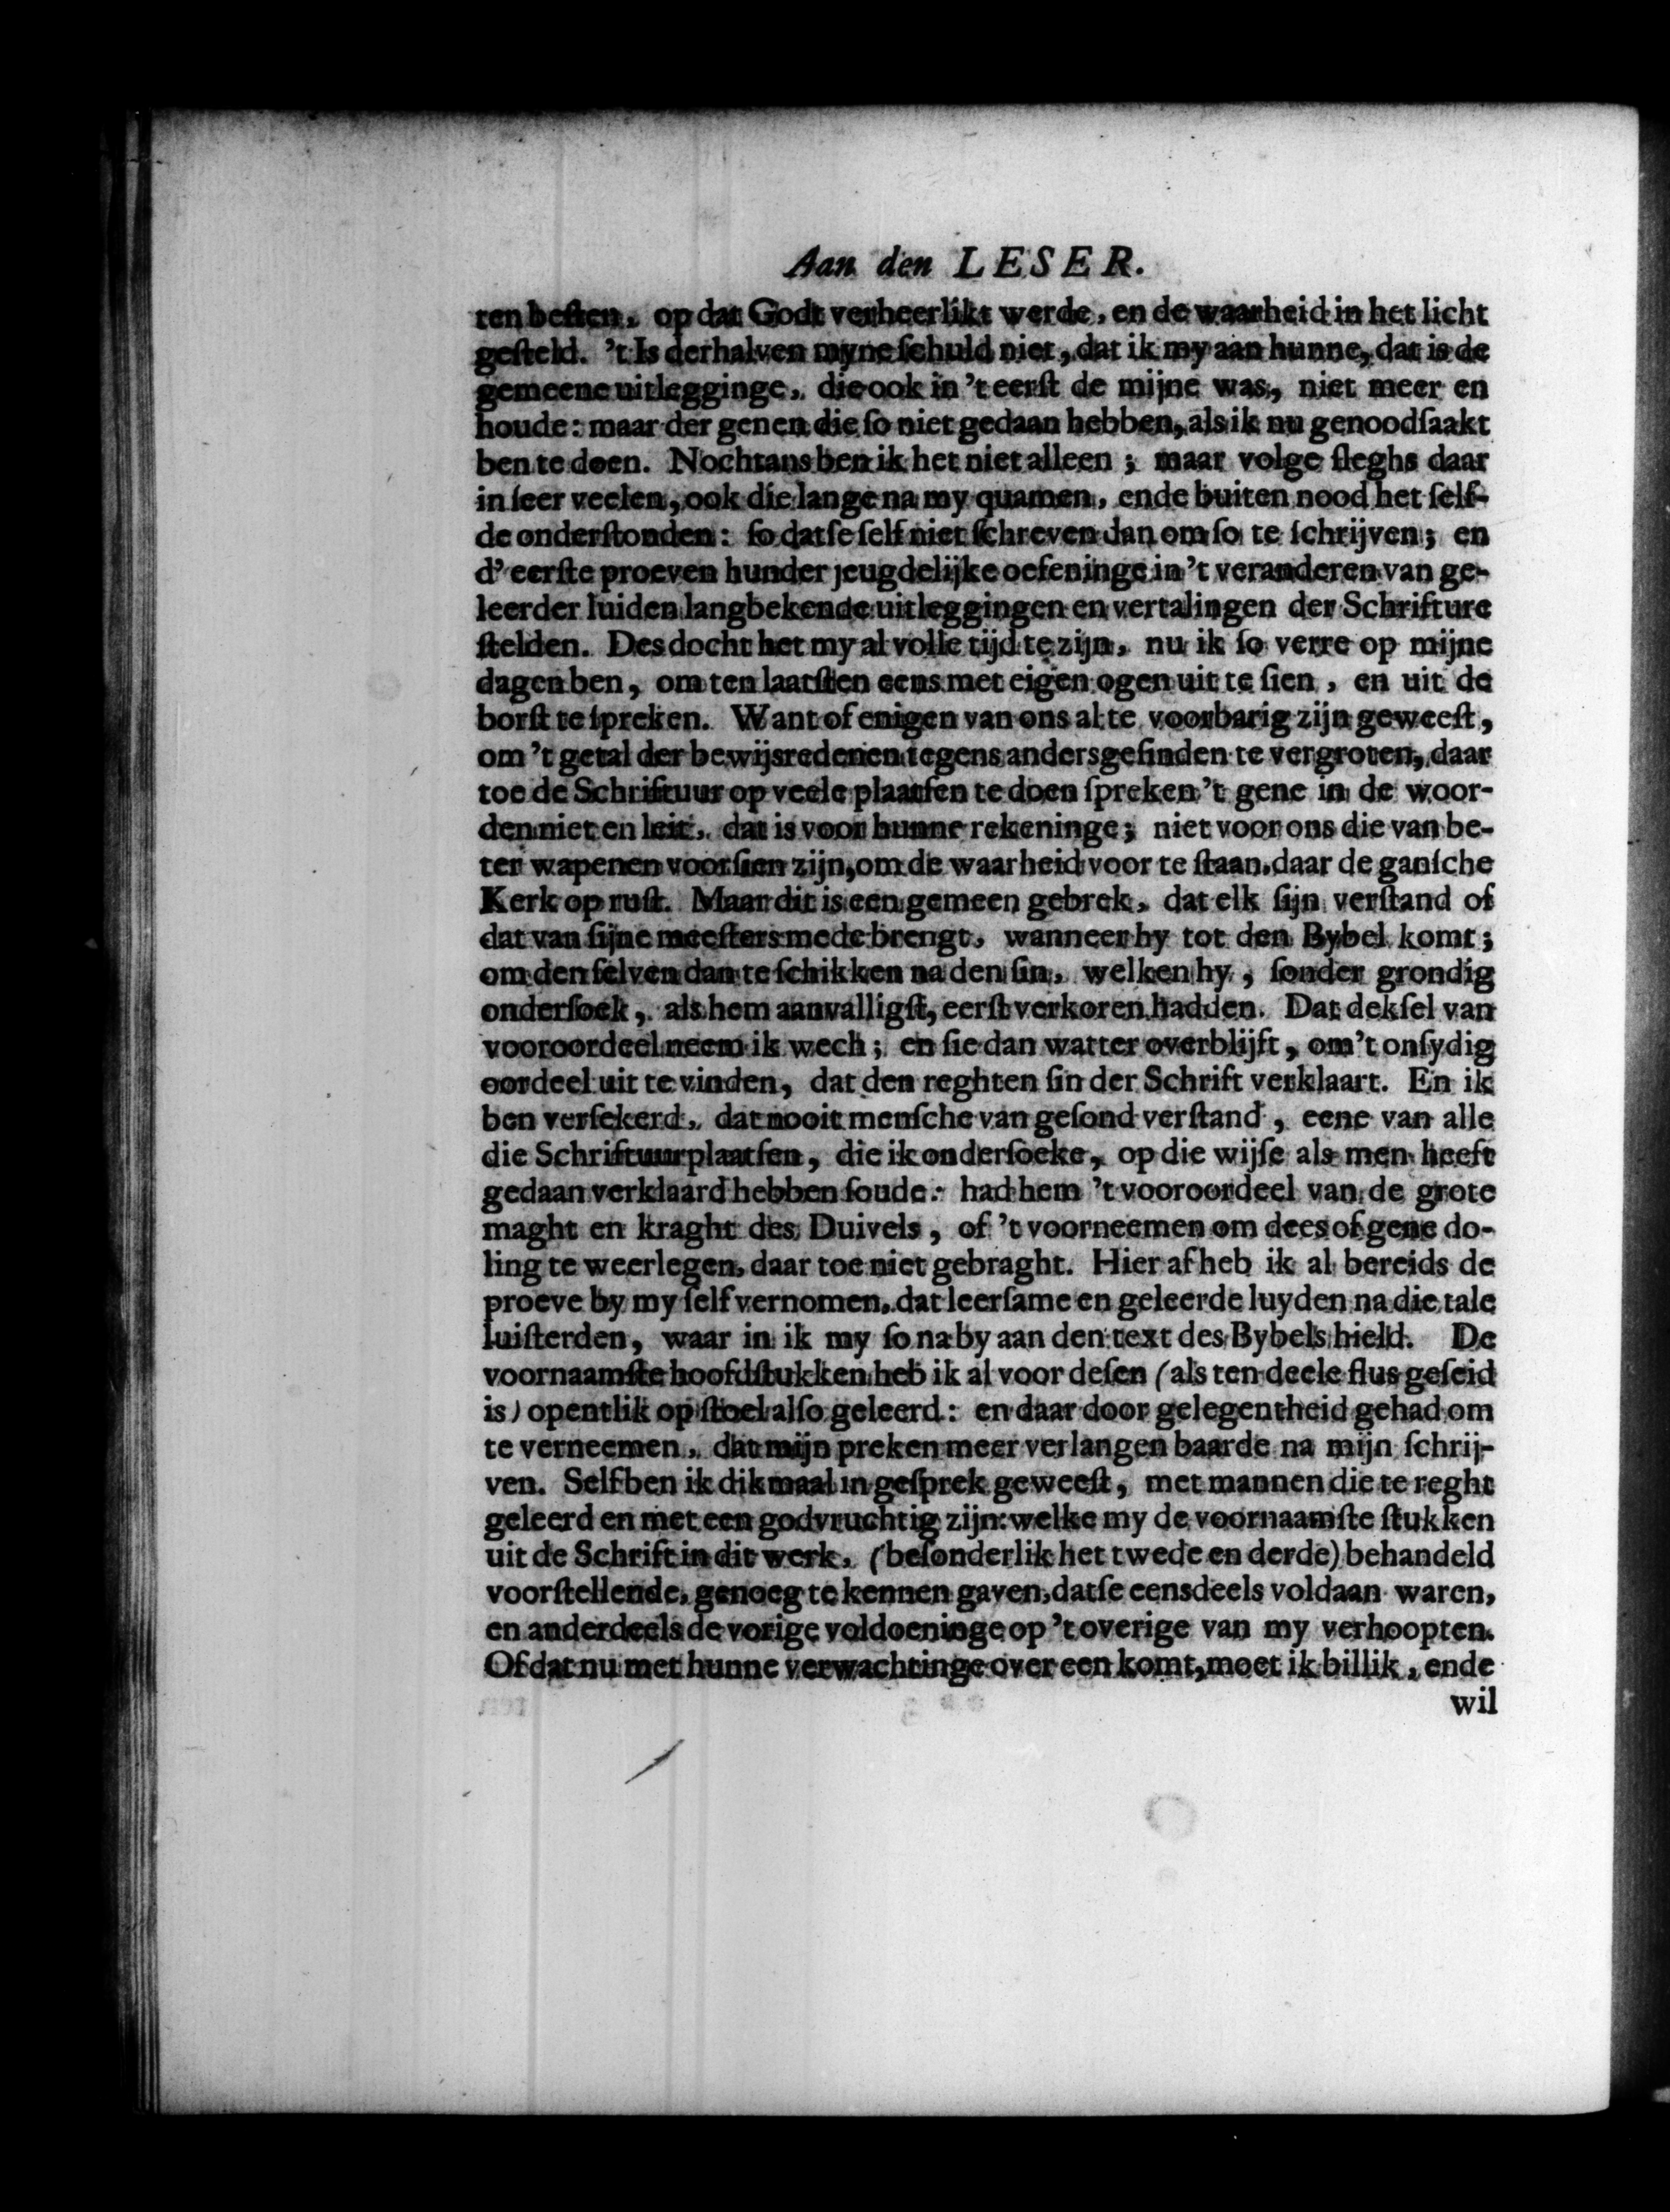 Aan den LESER.
ten beſten, op dat Godt verheerlikt werde, en de waarheid in het licht
geſteld. 't Is derhalven myne ſchuld niet, dat ik my aan hunne, dat is de
gemeene uitlegginge, die ook in 't eerſt de mijne was, niet meer en
houde: maar der genen die ſo niet gedaan hebben, als ik nu genoodſaakt
ben te doen. Nochtans ben ik het niet alleen; maar volge ſleghs daar
in ſeer veelen, ook die lange na my quamen, ende buiten nood het ſelf-
de onderſtonden: ſo datſe ſelf niet ſchreven dan om ſo te ſchrijven; en
d' eerſte proeven hunder jeugdelijke oefeninge in 't veranderen van ge-
leerder luiden langbekende uitleggingen en vertalingen der Schrifture
ſtelden. Des docht het my al volle tijd te zijn, nu ik ſo verre op mijne
dagen ben, om ten laatſten eens met eigen ogen uit te ſien, en uit de
borſt te ſpreken. Want of enigen van ons al te voorbarig zijn geweeſt,
om 't getal der bewijsredenen tegens andersgeſinden te vergroten, daar
toe de Schriftuur op veele plaatſen te doen ſpreken 't gene in de woor-
den niet en leit, dat is voor hunne rekeninge; niet voor ons die van be-
ter wapenen voorſien zijn, om de waarheid voor te ſtaan, daar de ganſche
Kerk op ruſt. Maar dit is een gemeen gebrek, dat elk ſijn verſtand of
dat van ſijne meeſters mede brengt, wanneer hy tot den Bybel komt;
om den ſelven dan te ſchikken na den ſin, welken hy, ſonder grondig
onderſoek, als hem aanvalligſt, eerſt verkoren hadden. Dat dekſel van
vooroordeel neem ik wech; en ſie dan watter overblijft, om 't onſydig
oordeel uit te vinden, dat den reghten ſin der Schrift verklaart. En ik
ben verſekerd, dat nooit menſche van geſond verſtand, eene van alle
die Schriftuurplaatſen, die ik onderſoeke, op die wijſe als men heeft
gedaan verklaard hebben ſoude: had hem 't vooroordeel van de grote
maght en kraght des Duivels, of 't voorneemen om dees of gene do-
ling te weerlegen, daar toe niet gebraght. Hier af heb ik al bereids de
proeve by my ſelf vernomen, dat leerſame en geleerde luyden na die tale
luiſterden, waar in ik my ſo na by aan den text des Bybels hield. De
voornaamſte hoofdſtukken heb ik al voor deſen (als ten deele flus geſeid
is) opentlik op ſtoel alſo geleerd: en daar door gelegentheid gehad om
te verneemen, dat mijn preken meer verlangen baarde na mijn ſchrij-
ven. Self ben ik dikmaal in geſprek geweeſt, met mannen die te reght
geleerd en met een godvruchtig zijn: welke my de voornaamſte ſtukken
uit de Schrift in dit werk, (beſonderlik het twede en derde) behandeld
voorſtellende, genoeg te kennen gaven, datſe eensdeels voldaan waren,
en anderdeels de vorige voldoeninge op 't overige van my verhoopten.
Of dat nu met hunne verwachtinge over een komt, moet ik billik, ende
wil